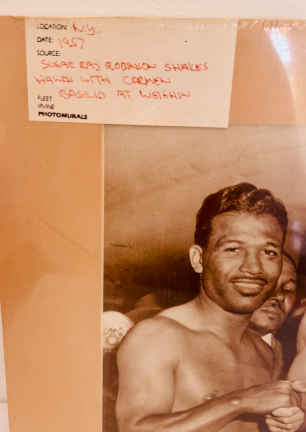 LOCATION: N.Y.
DATE: 1957
SOURCE:
SUGAR RAY ROBINSON SHAKES
HANDS WITH CARMEN
BASILIO AT WEIGHIN
FLEET
IRVINE
PHOTOMURALS